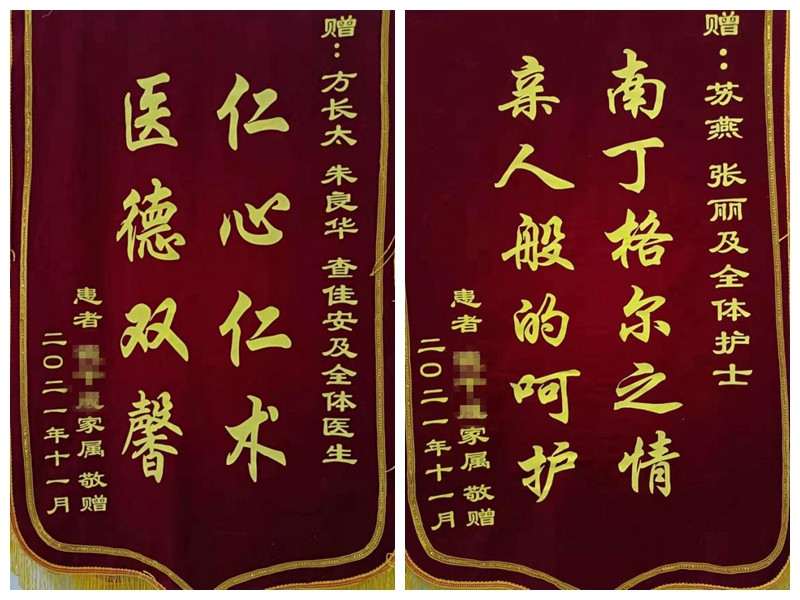 赠：方长太 朱良华 查佳安及全体医生
仁心仁术
医德双馨
患者
家属 敬赠
二〇二一年十一月
赠：苏燕 张丽及全体护士
南丁格尔之情
亲人般的呵护
患者
家属 敬赠
二〇二一年十一月